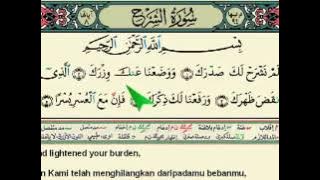 سُورَةُ الشَّرْحِ
بِسْمِ اللَّهِ الرَّحْمَٰنِ الرَّحِيمِ
لَمْ نَشْرَحْ لَكَ صَدْرَكَ وَوَضَعْنَا عَنكَ وِزْرَكَ الَّذِي
نقَضَ ظَهْرَكَ وَرَفَعْنَا لَكَ ذِكْرَكَ فَإِنَّ مَعَ الْعُسْرِ يُسْرًا
nd lightened your burden,
n Kami telah menghilangkan daripadamu bebanmu,